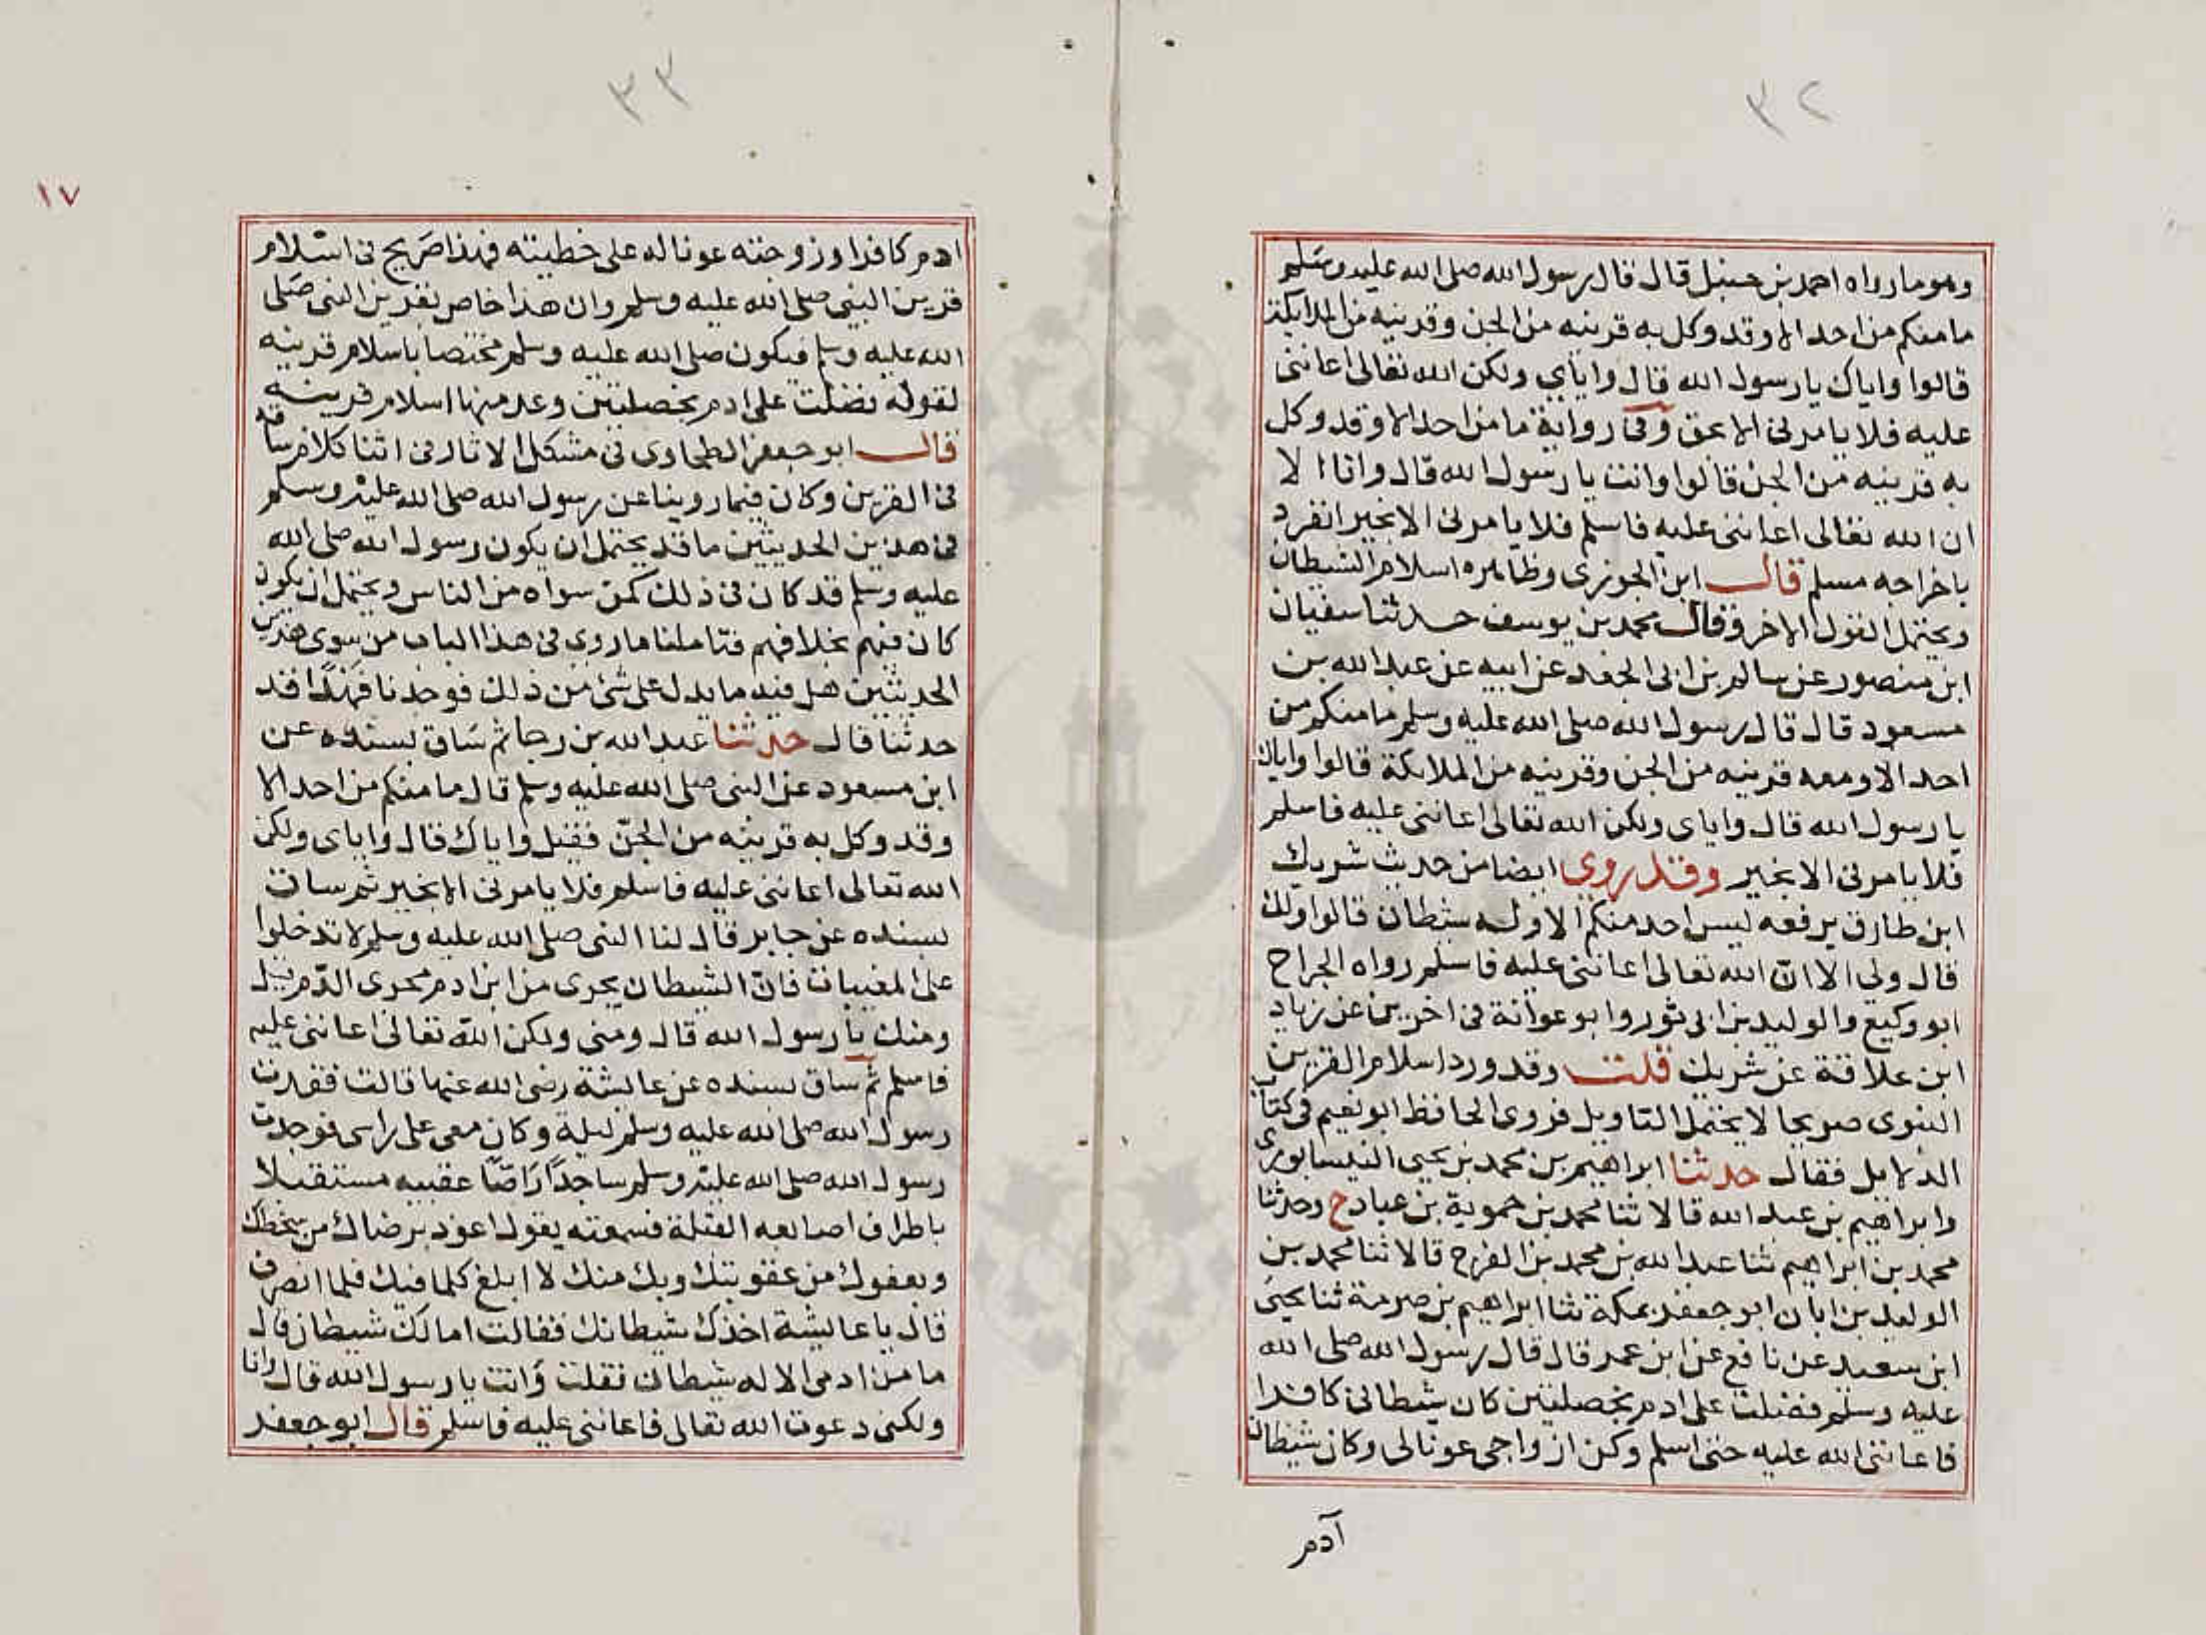 ٣٢
وهو ما رواه احمد بن حنبل قال قال رسول الله صلى الله عليه وسلم
ما منكم من احد الا وقد وكل به قرينه من الجن وقرينه من الملايكة
قالوا واياك يا رسول الله قال واياي ولكن الله تعالى اعانني
عليه فلا يامرني الا بحق وفي رواية ما من احد الا وقد وكل
به قرينه من الجن قالوا وانت يا رسول الله قال وانا الا
ان الله تعالى اعانني عليه فاسلم فلا يامرني الا بخير انفرد
باخراجه مسلم قال ابن الجوزي وظاهره اسلام الشيطان
ويحتمل القول الاخر وقال محمد بن يوسف حدثنا سفيان
ابن منصور عن سالم بن ابى الجعد عن ابيه عن عبد الله بن
مسعود قال قال رسول الله صلى الله عليه وسلم ما منكم من
احد الا ومعه قرينه من الجن وقرينه من الملائكة قالوا واياك
يا رسول الله قال واياى ولكن الله تعالى اعانني عليه فاسلم
فلا يامرني الا بخير وقد روي ايضا من حديث شريك
ابن طارق يرفعه ليس احد منكم الا وله شيطان قالوا ولك
قال ولي الا ان الله تعالى اعانني عليه فاسلم رواه الجراح
ابو وكيع والوليد بن ابى ثور وابو عوانة في اخرين عن زياد
ابن علاقة عن شريك قلت وقد ورد اسلام القرين
النبوى صريحا لا يحتمل التاويل فروى الحافظ ابو نعيم في كتاب
الدلايل فقال حدثنا ابراهيم بن محمد بن يحيى النيسابورى
وابراهيم بن عبد الله قالا ثنا محمد بن حموية بن عباد ح وحدثنا
محمد بن ابراهيم ثنا عبد الله بن محمد بن الفرح قالا ثنا محمد بن
الوليد بن ابان ابو جعفر بمكة ثنا ابراهيم بن صرمة ثنا يحيى
ابن سعيد عن نافع عن ابن عمر قال قال رسول الله صلى الله
عليه وسلم فضلت على ادم بخصلتين كان شيطاني كافرا
فاعانني الله عليه حتى اسلم وكن ازواجي عونا لي وكان شيطان
آدم
٣٣
١٧
ادم كافرا وزوجته عونا له على خطيته فهذا صريح في اسلام
قرين النبي صلى الله عليه وسلم وان هذا خاص بقرين النبي صلى
الله عليه وسلم فيكون صلى الله عليه وسلم مختصا باسلام قرينه
لقوله فضلت على ادم بخصلتين وعد منها اسلام قرينه
قال ابو جعفر الطحاوى في مشكل الاثار في اثنا كلام ساقه
في القرين وكان فيما روينا عن رسول الله صلى الله عليه وسلم
في هذين الحديثين ما قد يحتمل ان يكون رسول الله صلى الله
عليه وسلم قد كان في ذلك كمن سواه من الناس ويحتمل ان يكون
كان فيهم بخلافهم فتاملنا ما روي في هذا الباب من سوى هذين
الحديثين هل فيه ما يدل على شئ من ذلك فوجدنا فهدا قد
حدثنا قال حدثنا عبد الله بن رجا ثم ساق بسنده عن
ابن مسعود عن النبي صلى الله عليه وسلم قال ما منكم من احد الا
وقد وكل به قرينه من الجن فقيل واياك قال واياى ولكن
الله تعالى اعانني عليه فاسلم فلا يامرني الا بخير ثم ساق
بسنده عن جابر قال لنا النبي صلى الله عليه وسلم لا تدخلوا
على المغيبات فان الشيطان يجرى من ابن ادم مجرى الدم قيل
ومنك يا رسول الله قال ومني ولكن الله تعالى اعانني عليه
فاسلم ثم ساق بسنده عن عائشة رضى الله عنها قالت فقدت
رسول الله صلى الله عليه وسلم ليلة وكان معى على راسى فوجدت
رسول الله صلى الله عليه وسلم ساجدا راصا عقبيه مستقبلا
باطراف اصابعه القبلة فسمعته يقول اعوذ برضاك من سخطك
وبعفوك من عقوبتك وبك منك لا ابلغ كلما فيك فلما انصرف
قال يا عايشة اخذك شيطانك فقالت اما لك شيطان قال
ما من ادمي الا له شيطان فقلت وانت يا رسول الله قال وانا
ولكني دعوت الله تعالى فاعانني عليه فاسلم قال ابو جعفر